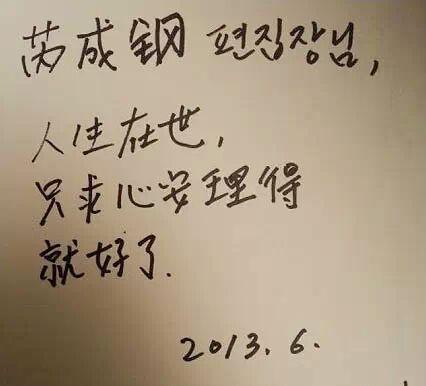 芮成钢 편집장님,
人生在世,
只求心安理得
就好了.
2013. 6.